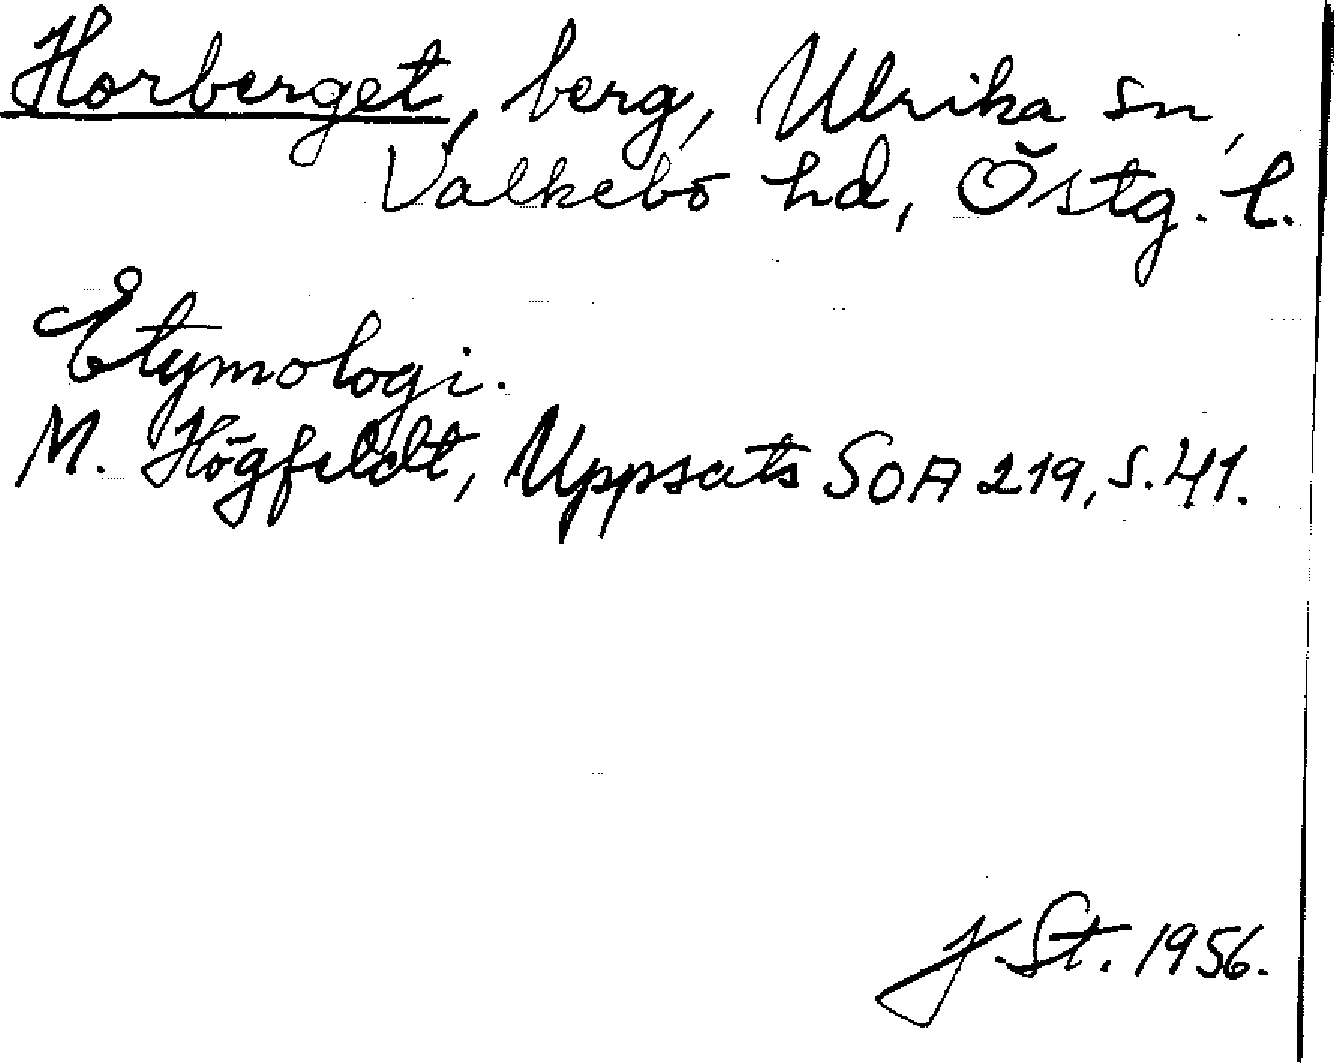 Horberget, berg, Ulrika sn,
Valkebo hd, Östg. l.
Etymologi.
M. Högfeldt, Uppsats SOA 219, s. 41.
J. St. 1956.